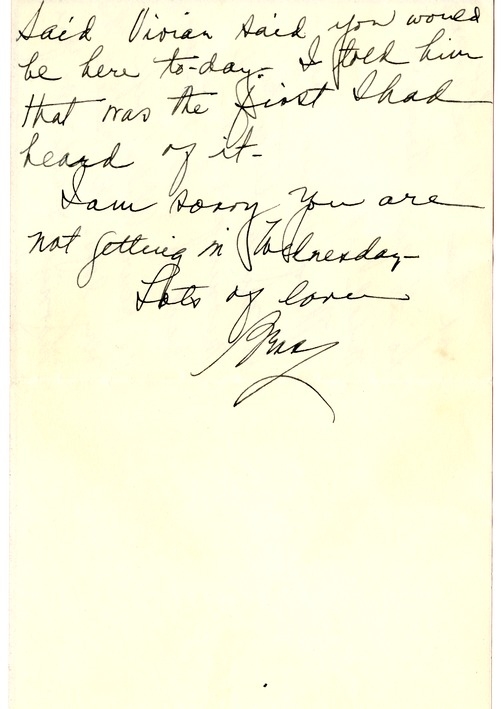 Said Vivian said you would
be here to-day - I told him
that was the first I had
heard of it -
I am sorry you are
not getting in Wednesday -
Lots of love